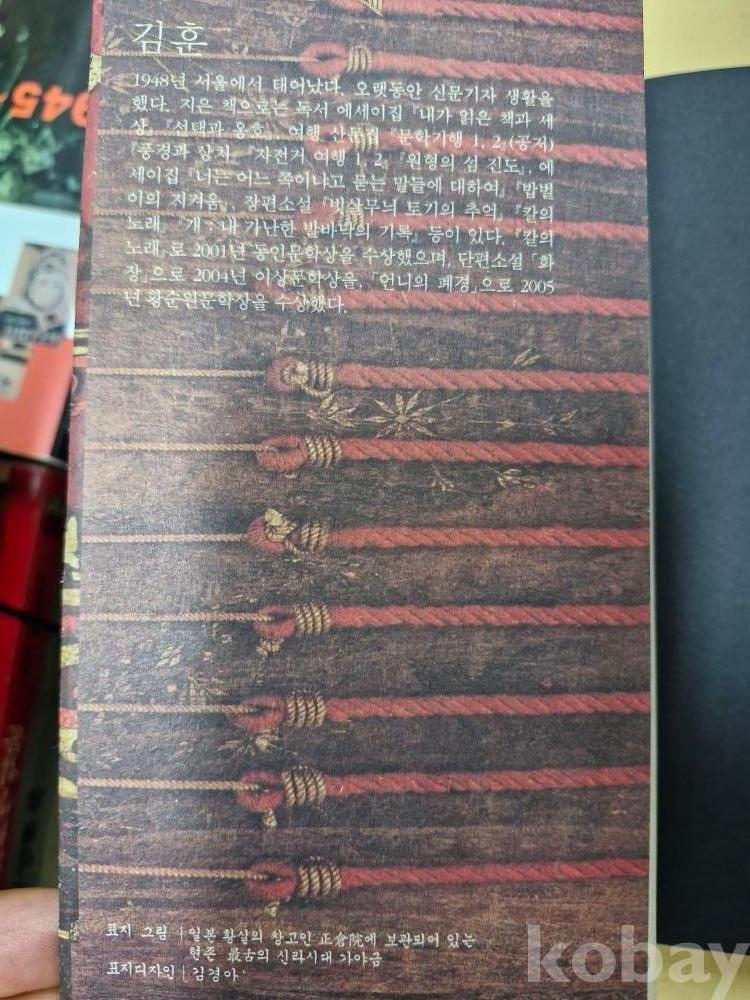 김훈
1948년 서울에서 태어났다. 오랫동안 신문기자 생활을
했다. 지은 책으로는 독서 에세이집 『내가 읽은 책과 세
상』, 『선택과 옹호』, 여행 산문집 『문학기행 1, 2』(공저)
『풍경과 상처』 『자전거 여행 1, 2』 『원형의 섬 진도』, 에
세이집 『너는 어느 쪽이냐고 묻는 말들에 대하여』, 『밥벌
이의 지겨움』, 장편소설 『빗살무늬 토기의 추억』, 『칼의
노래』 『개 : 내 가난한 발바닥의 기록』 등이 있다. 『칼의
노래』로 2001년 동인문학상을 수상했으며, 단편소설 「화
장」으로 2004년 이상문학상을, 「언니의 폐경」으로 2005
년 황순원문학상을 수상했다.
표지 그림 | 일본 황실의 창고인 正倉院에 보관되어 있는
현존 最古의 신라시대 가야금
표지디자인 | 김경아
kobay
945